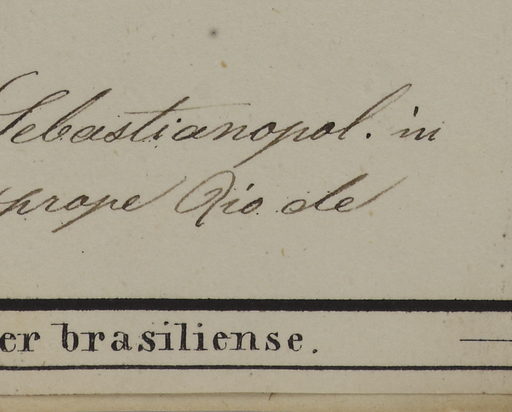 Sebastianopol. in
prope Rio de
er brasiliense.